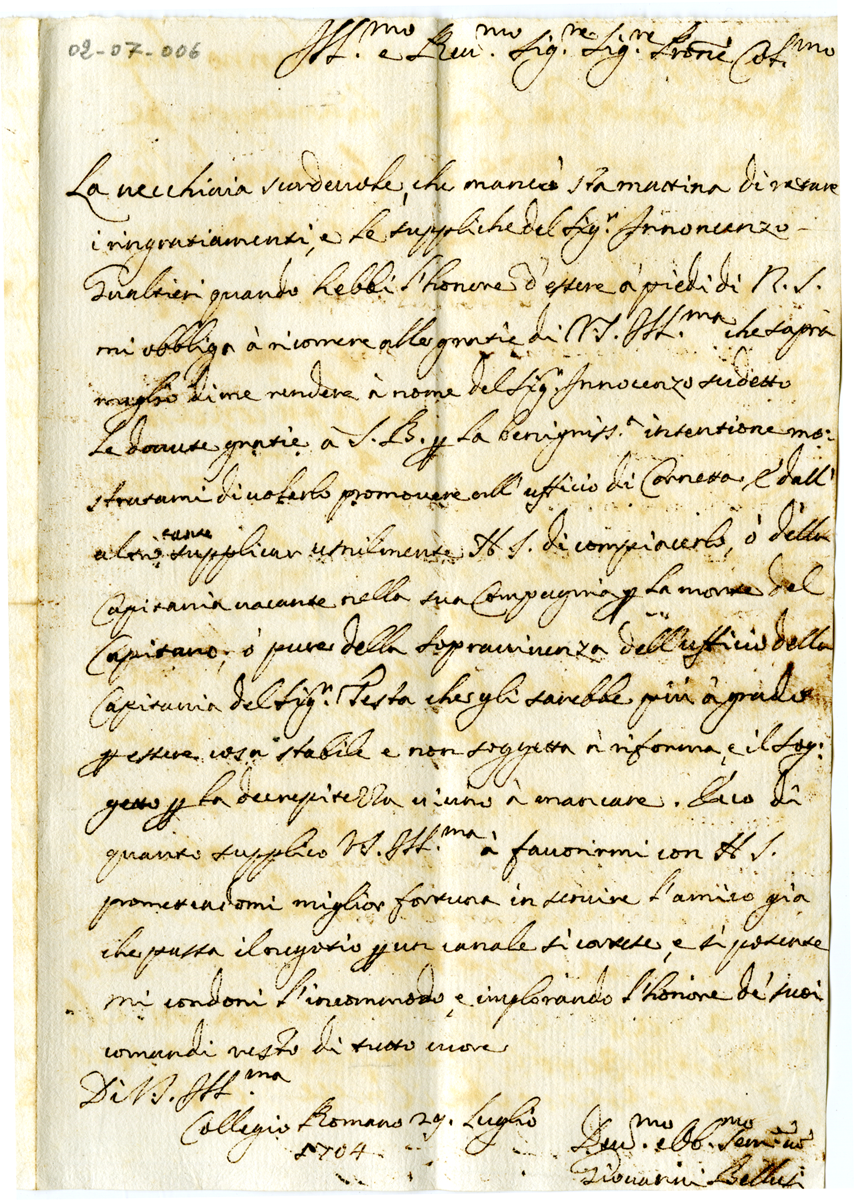 02-07-006
Ill.mo e Reu.mo Sig.re Sig.re Prone Col.mo
La vecchiaia scordeuole, che mancò sta mattina di restare
i ringratiamenti, e le suppliche del Sig.r Innocenzo
Gualtieri quando hebbi l'honore d'essere a' piedi di N. S.
mi obbliga à ricorrere alle gratie di V.S. Ill.ma che saprà
meglio di me rendere à nome del Sig.r Innocenzo sudetto
le douute gratie à S. B. p la benigniss.a intentione mo:
stratami di uolerlo promouere all' ufficio di Cornetta. E dall'
altro tanto supplicar umilmente N S. di compiacerlo, ò della
Capitania uacante nella sua Compagnia p la morte del
Capitano, ò pure della soprauiuenza dell'ufficio della
Capitania del Sig.r Testa che gli sarebbe più à grado
p essere cosa stabile e non soggetta à riforma, e il sog:
getto p la decrepitezza uicino à mancare. Ecco di
quanto supplico VS. Ill.ma à fauorirmi con N S.
promettendomi miglior fortuna in seruire l'amico già
che passa il negotio p un canale sì cortese, e sì potente
mi condoni l'incommodo, e implorando l'honore de' suoi
comandi resto di tutto cuore
Di VS. Ill.ma
Collegio Romano 29. Luglio
1704
Deu.mo e Ob.mo Seru.re
Giovanni Bellusi